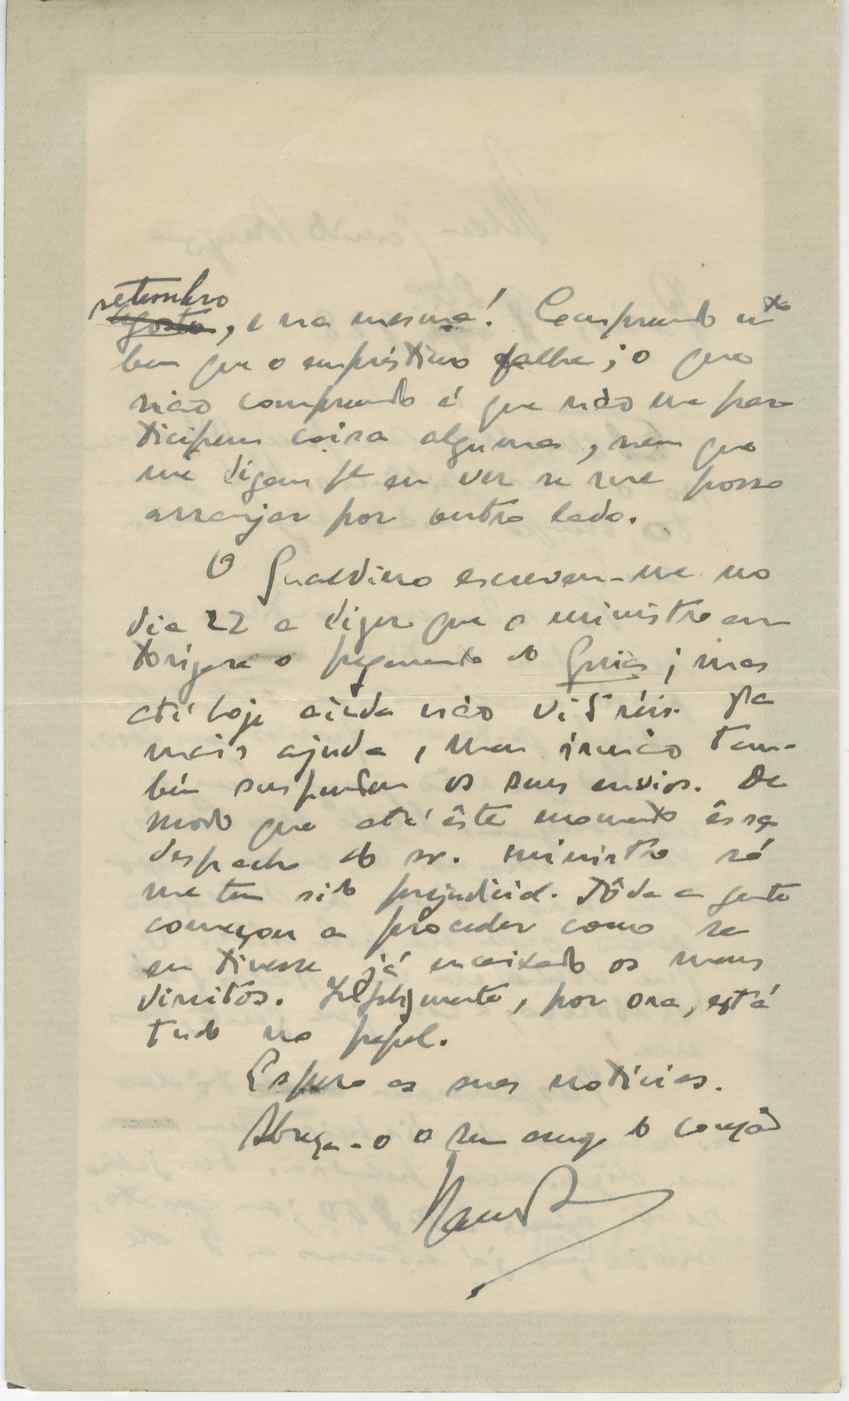 setembro
agosto, e na mesma! Comprendo mto
bem que o empréstimo falhe; o que
não comprendo é que não me par-
ticipem coisa alguma, nem que
me digam pa eu ver se me posso
arranjar por outro lado.
O Gualdino escreveu-me no
dia 22 a dizer que o ministro au-
torizara o pagamento do Guia; mas
até hoje ainda não vi 5 réis. Pa
mais ajuda, meu irmão tam-
bém suspendeu os seus envios. De
modo que até êste momento êsse
despacho do sr. ministro só
me tem sido prejudicial. Tôda a gente
começou a proceder como se
eu tivesse já encaixado os meus
direitos. Infelizmente, por ora, está
tudo no papel.
Espero as suas notícias.
Abraça-o o seu amigo do coração